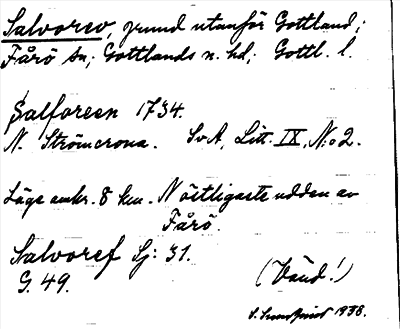 Salvorev, grund utanför Gottland;
Fårö sn; Gottlands n. hd; Gottl. l.
Salforeen 1734.
N. Strömcrona. SvA, Litt. IX, N:o 2.
Läge omkr. 8 km. N östligaste udden av
Fårö.
Salvoref Sj: 31.
G. 49. (Vänd!)
1938.